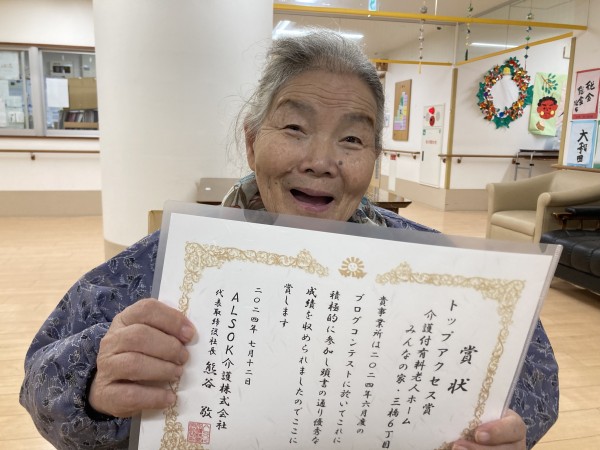 賞状
トップアクセス賞
介護付有料老人ホーム
みんなの家・三橋6丁目
貴事業所は二〇二四年六月度の
ブログコンテストに於いてこれに
積極的に参加し頭書の通り優秀な
成績を収められましたのでここに
賞します
二〇二四年七月十二日
ALSOK介護株式会社
代表取締役社長 熊谷 敬